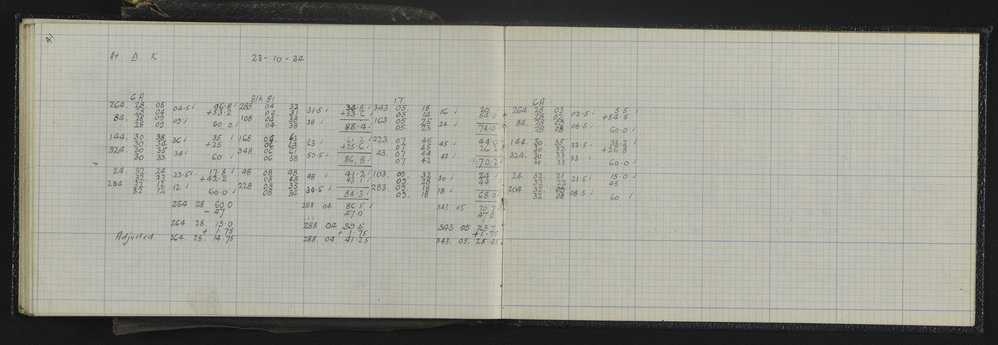 H Δ K 23-10-34
GA Blk Bl IT GA
264. 28 05 04.5 i 06.8 i 288 04 32 31.5 i 34.5 i 343 05. 18 16 i 20 i 264 28 03 02.5 i 5.5 i
28 04 +53.2 04 31 +53.6 05 14 50.0 28 02 +54.5
84. 28 03 02 i 60.0 i 108 04 38 38 i 88.4 i 163 05. 25 24 i 74.0 84. 28 09 08.5 i 60.0 i
28 02 04 38 05. 23 28 08
144. 30 38 36 i 35 i 168 06 63 63 i 61.2 i 223. 07 45 45 i 44.0 144. 30 35 33.5 i 33.2 i
30 34 +25 06 63 +25.6 07 45 26.2 30 32 +26.8
324 30 35 34 i 60 i 348 06 61 59.5 i 86.8 i 43. 07 44 43 i 70.2 324. 30 33 33 i 60.0 i
30 33 06 58 07 42 30 33
24. 32 24 23.5 i 17.8 i 48 08 48 48 i 41.2 i 103. 09. 32 30 i 24 i 24 32 21 21.5 i 15.0 i
32 23 +42.2 08 48 43.1 09. 28 44 32 22 45
204 32 12 12 i 60.0 i 228 08 35 34.5 i 84.3 i 283. 09. 18 18 i 68.0 204 32 09 08.5 i 60 i
32 12 08 34 09. 18 32 08
264 28 60.0 288. 04 86.5 i 343 05 70.7
- 47 47.0 47.0
264 28 13.0 288 04 39.5 343 05 23.7
+ 1.75 + 1.75 +1.75
Adjusted. 264. 28 14.75 288. 04 41.25 343. 05. 25.45